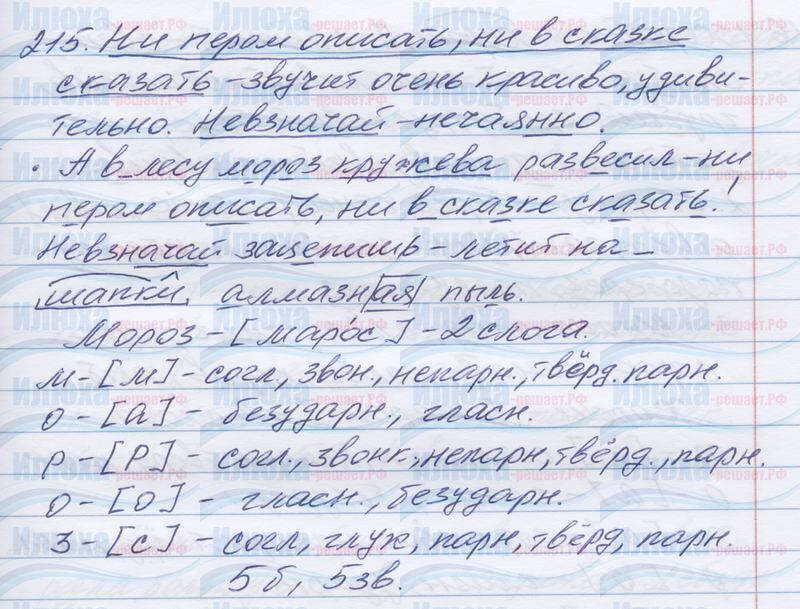 215. Ни пером описать, ни в сказке
сказать - звучит очень красиво, удиви-
тельно. Невзначай - нечаянно.
А в лесу мороз кружева развесил - ни
пером описать, ни в сказке сказать!
Невзначай зацепишь - летит на
шапки алмазная пыль.
Мороз - [марос] - 2 слога.
м - [м] - согл., звон., непарн., твёрд. парн.
о - [а] - безударн., гласн.
р - [р] - согл., звонк., непарн., твёрд., парн.
о - [о] - гласн., безударн.
з - [с] - согл, глуж, парн, твёрд, парн.
5 б, 5 зв.